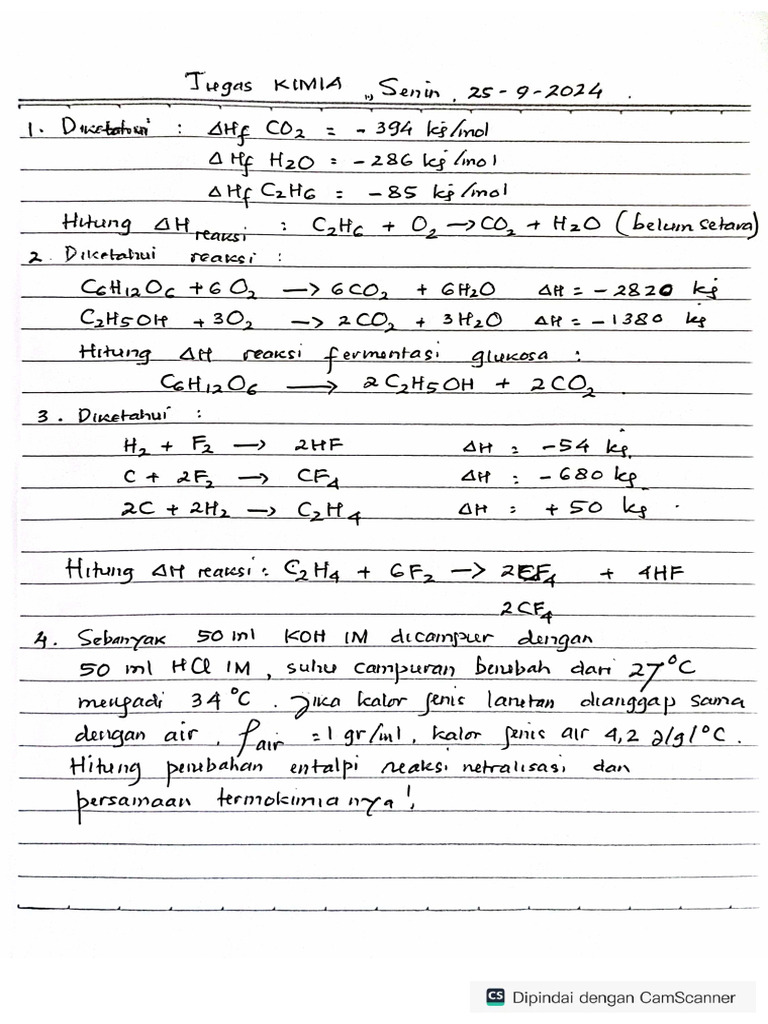 Tugas KIMIA ,, Senin, 25-9-2024.
1. Diketahui : ΔHf CO2 = - 394 kj/mol
ΔHf H2O = -286 kj/mol
ΔHf C2H6 = -85 kj/mol
Hitung ΔH reaksi : C2H6 + O2 → CO2 + H2O (belum setara)
2. Diketahui reaksi :
C6H12O6 + 6 O2 → 6CO2 + 6H2O ΔH = -2820 kj
C2H5OH + 3O2 → 2CO2 + 3H2O ΔH = -1380 kj
Hitung ΔH reaksi fermentasi glukosa :
C6H12O6 → 2C2H5OH + 2CO2.
3. Diketahui :
H2 + F2 → 2HF ΔH : -54 kj.
C + 2F2 → CF4 ΔH : -680 kj
2C + 2H2 → C2H4 ΔH : +50 kj.
Hitung ΔH reaksi : C2H4 + 6F2 → 2CF4 + 4HF
2CF4
4. Sebanyak 50 ml KOH 1M dicampur dengan
50 ml HCl 1M, suhu campuran berubah dari 27°C
menjadi 34°C. Jika kalor jenis larutan dianggap sama
dengan air, ρ air = 1 gr/ml, kalor jenis air 4,2 J/g/°C.
Hitung perubahan entalpi reaksi netralisasi dan
persamaan termokimia nya!
CS Dipindai dengan CamScanner